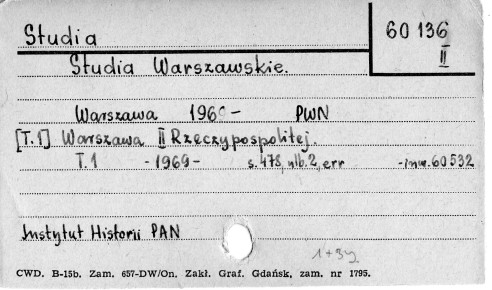 Studia
60 136
II
Studia Warszawskie.
Warszawa 1968- PWN
[T.1] Warszawa II Rzeczypospolitej.
T.1 -1969- s.478, nlb.2, err -inw.60532
Instytut Historii PAN
CWD. B-15b. Zam. 657-DW/On. Zakł. Graf. Gdańsk, zam. nr 1795.